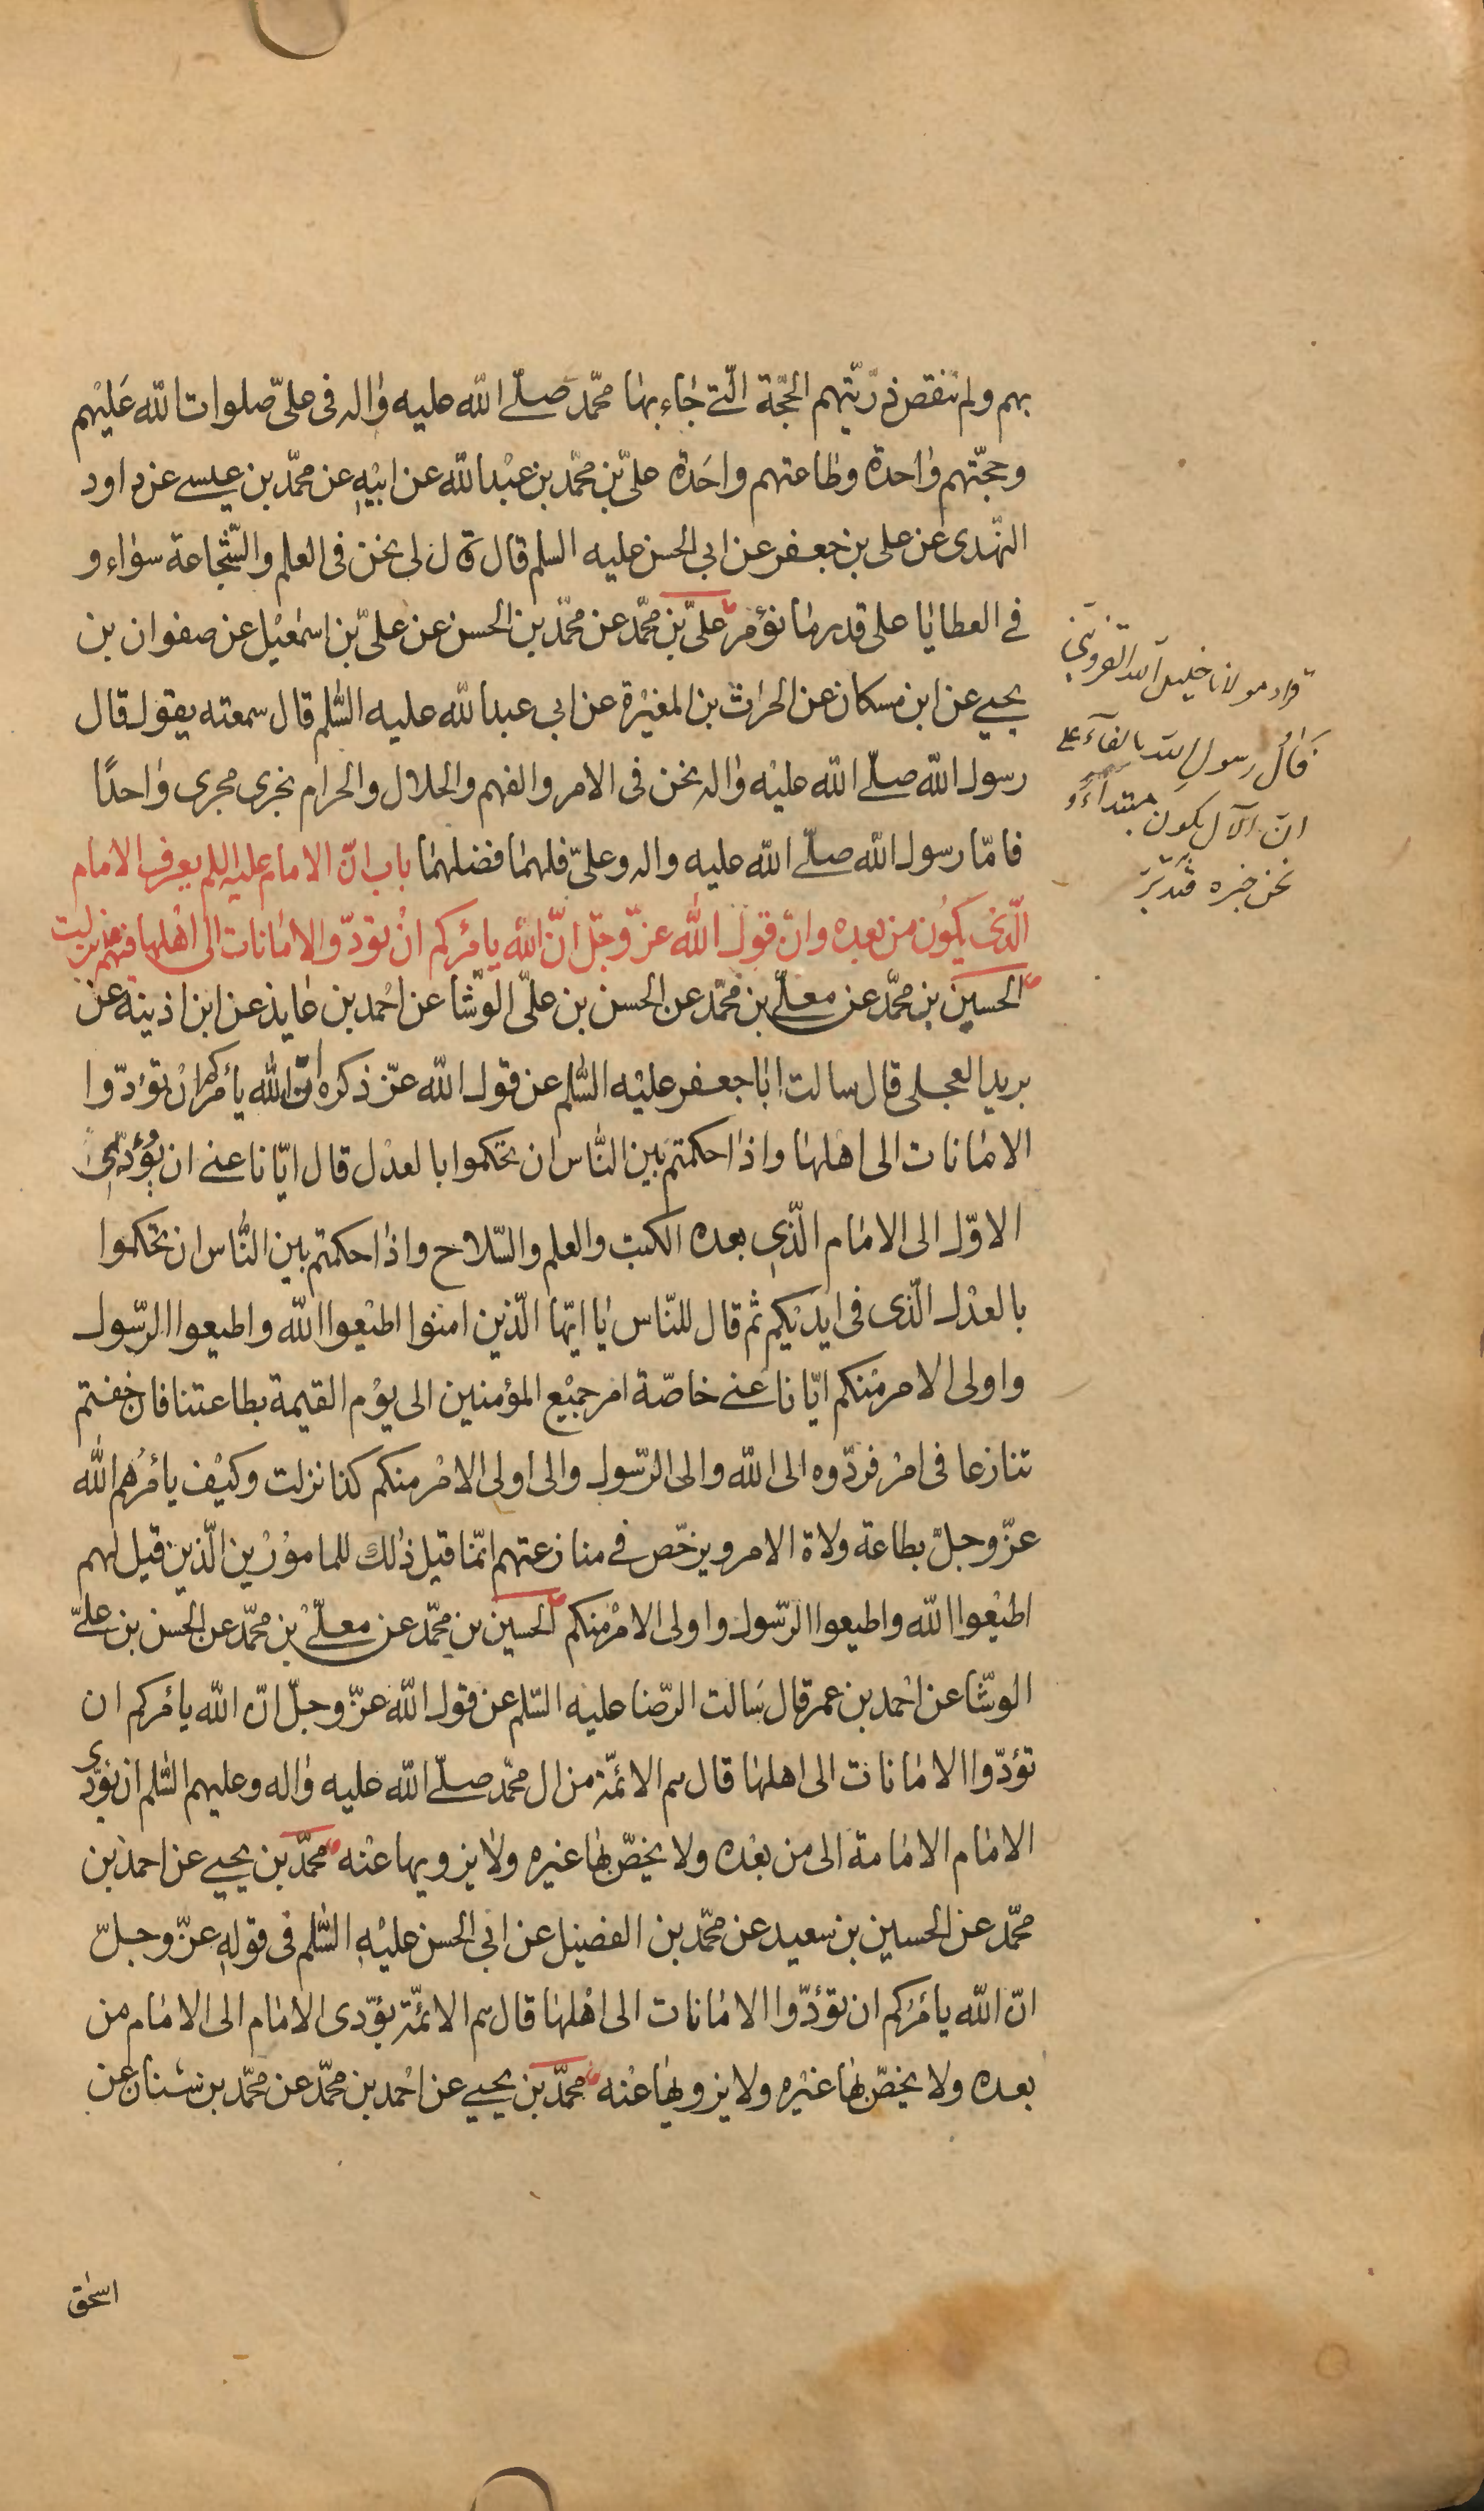 بهم ولم تنقص ذرّيّتهم الحجّة الّتي جاء بها محمّد صلّى الله عليه واله في علىّ صلوات الله عليهم
وحجّتهم واحدة وطاعتهم واحدة علىّ بن محمّد بن عبد الله عن ابيه عن محمّد بن عيسى عن داود
النّهدى عن على بن جعفر عن ابي الحسن عليه السلم قال قال لى نحن فى العلم والشّجاعة سواء و
في العطايا على قدر ما نؤمر علىّ بن محمّد عن محمّد بن الحسن عن علىّ بن اسمعيل عن صفوان بن
يحيى عن ابن مسكان عن الحراث بن المغيرة عن ابي عبد الله عليه السّلم قال سمعته يقول قال
رسول الله صلّى الله عليه واله نحن فى الامر والفهم والحلال والحرام نجرى مجرى واحدًا
فامّا رسول الله صلّى الله عليه واله وعلىّ فلهما فضلهما باب انّ الامام عليه السلم يعرف الامام
الّذى يكون من بعده وانّ قول الله عزّ وجلّ انّ الله يامركم ان تؤدّوا الامانات الى اهلها فيهم نزلت
الحسين بن محمّد عن معلّى بن محمّد عن الحسن بن علىّ الوشّا عن احمد بن عايذ عن ابن اذينه عن
بريد العجلى قال سالت ابا جعفر عليه السّلم عن قول الله عزّ ذكره انّ الله يأمركم ان تؤدّوا
الامانات الى اهلها واذا حكمتم بين النّاس ان تحكموا بالعدل قال ايّانا عنى ان يُؤدّى
الاوّل الى الامام الّذى بعده الكتب والعلم والسّلاح واذا حكمتم بين النّاس ان تحكموا
بالعدل الّذى فى ايديكم ثم قال للنّاس يا ايّها الّذين امنوا اطيعوا الله واطيعوا الرّسول
واولى الامر منكم ايّانا عنى خاصّة امر جميع المؤمنين الى يوم القيمة بطاعتنا فان خفتم
تنازعا فى امر فردّوه الى الله والى الرّسول والى اولى الامر منكم كذا نزلت وكيف يامرهم الله
عزّ وجلّ بطاعة ولاة الامر ويرخّص في منازعتهم انّما قيل ذلك للمامورين الّذين قيل لهم
اطيعوا الله واطيعوا الرّسول واولى الامر منكم الحسين بن محمّد عن معلّى بن محمّد عن الحسن بن علىّ
الوشّا عن احمد بن عمر قال سالت الرّضا عليه السّلم عن قول الله عزّ وجلّ انّ الله يامركم ان
تؤدّوا الامانات الى اهلها قال هم الائمّة من ال محمّد صلّى الله عليه واله وعليهم السّلم ان يؤدّى
الامام الامامة الى من بعده ولا يخصّ بها غيره ولا يزويها عنه محمّد بن يحيى عن احمد بن
محمّد عن الحسين بن سعيد عن محمّد بن الفضيل عن ابي الحسن عليه السّلم فى قوله عزّ وجلّ
انّ الله يامركم ان تؤدّوا الامانات الى اهلها قال هم الائمّة يؤدّى الامام الى الامام من
بعده ولا يخصّ بها غيره ولا يزويها عنه محمّد بن يحيى عن احمد بن محمّد عن محمّد بن سنان عن
اسحق
قراء مولانا خليل الله القزوينى
قال رسول الله بالفاء على
ان الآل يكون مبتداء و
نحن خبره فتدبّر